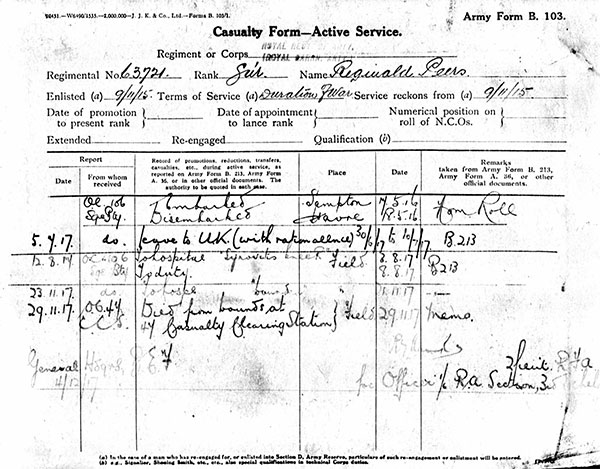 W6451.—W6490/1535.—2,000,000—J. J. K. & Co., Ltd.—Forms B. 103/1.
Army Form B. 103.
Casualty Form—Active Service.
Regiment or Corps
Regimental No. 63721. Rank Gnr. Name Reginald Peers
Enlisted (a) 9/11/15. Terms of Service (a) Duration of War Service reckons from (a) 9/11/15.
Date of promotion to present rank
Date of appointment to lance rank
Numerical position on roll of N.C.Os.
Extended Re-engaged Qualification (b)
Report
Date
From whom received
Record of promotions, reductions, transfers, casualties, etc., during active service, as reported on Army Form B. 213, Army Form A. 36, or in other official documents. The authority to be quoted in each case.
Place
Date
Remarks taken from Army Form B. 213, Army Form A. 36, or other official documents.
O.C. 106 Embarked 5.16
Sge Bty. Disembarked Havre 5.16 Nom Roll
5.7.17. do. Leave to U.K. (with ration allence) 30/6/17 to 10/7/17 B.213
12.8.17 O.C. 106 To hospital Field 3.8.17
Sge Bty To duty. 8.8.17 B213
23.11.17 do. To hospital
29.11.17. O.C. 47 Died from wounds at Field 29.11.17 Memo.
C.C.S. 47 Casualty Clearing Station
General Hdqrs.
4/12/17
2/Lieut. R.F.A
for Officer i/c R.A Section,
(a) In the case of a man who has re-engaged for, or enlisted into Section D, Army Reserve, particulars of such re-engagement or enlistment will be entered.
(b) e.g., Signaller, Shoeing Smith, etc., etc., also special qualifications in technical Corps duties.